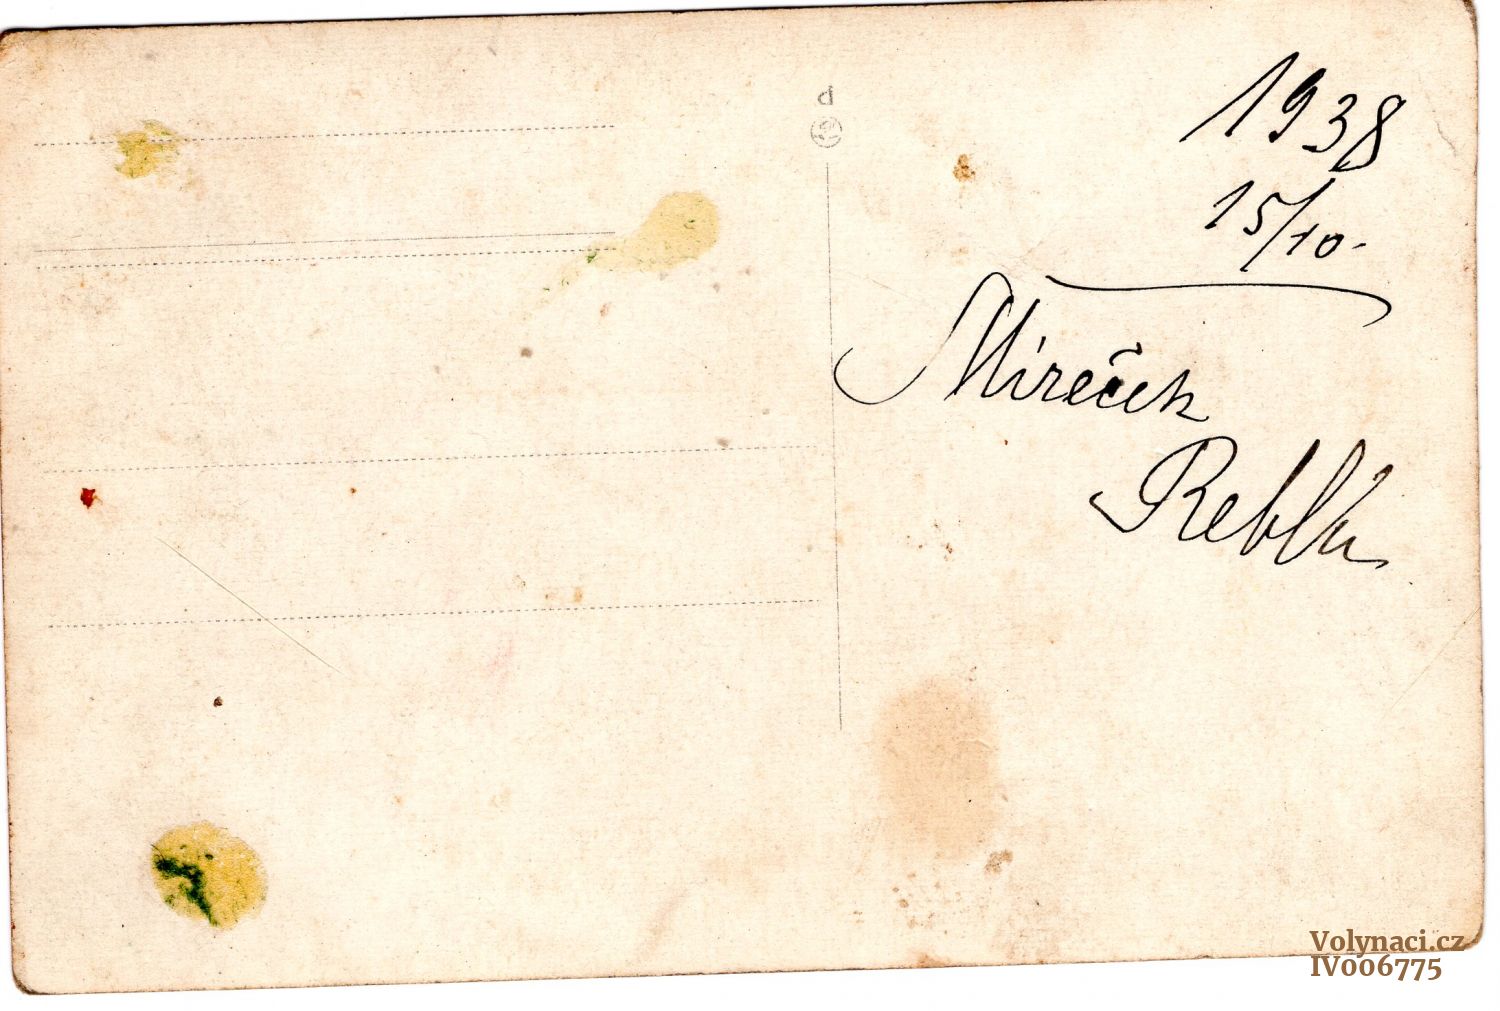 1938
15/10.
Mireček
Reblů
Volynaci.cz
IV006775